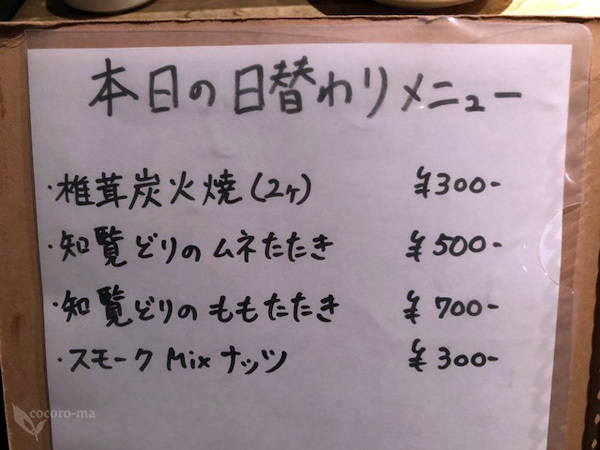 本日の日替わりメニュー
・椎茸炭火焼(2ヶ) ¥300-
・知覧どりのムネたたき ¥500-
・知覧どりのももたたき ¥700-
・スモークMixナッツ ¥300-
cocoro-ma